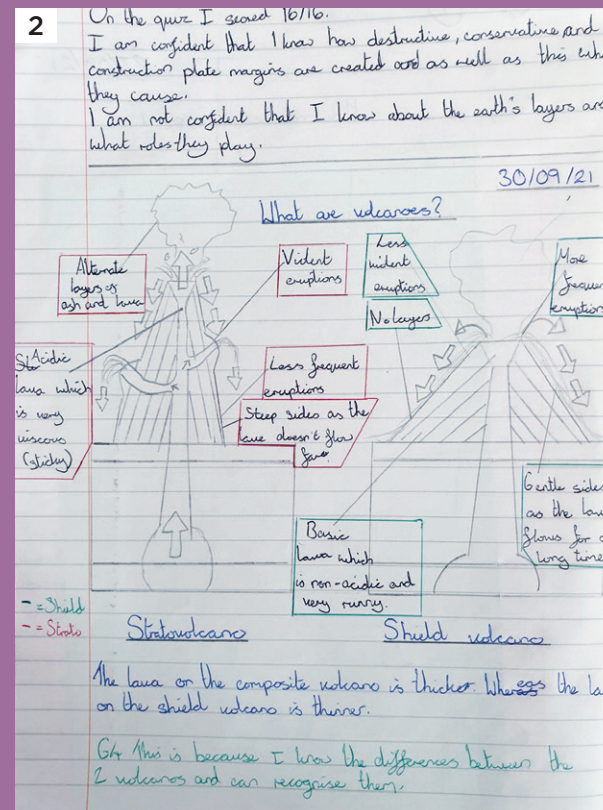 2
On the quiz I scored 16/16.
I am confident that I know how destructive, conservative, and
construction plate margins are created and as well as this
they cause.
I am not confident that I know about the earth's layers
what roles they play.
30/09/21
What are volcanoes?
Alternate
layers of
ash and lava
Violent
eruptions
Less
violent
eruptions
No layers
More
frequent
eruptions
Acidic
lava which
is very
viscous
(sticky)
Less frequent
eruptions
Steep sides as the
lava doesn't flow
far.
Basic
lava which
is non-acidic and
very runny.
Gentle sides
as the lava
flows for a
long time
- = Shield
- = Strato
Stratovolcano
Shield volcano
The lava on the composite volcano is thicker. Whereas the la
on the shield volcano is thinner.
G4 This is because I know the differences between the
2 volcanos and can recognise them.